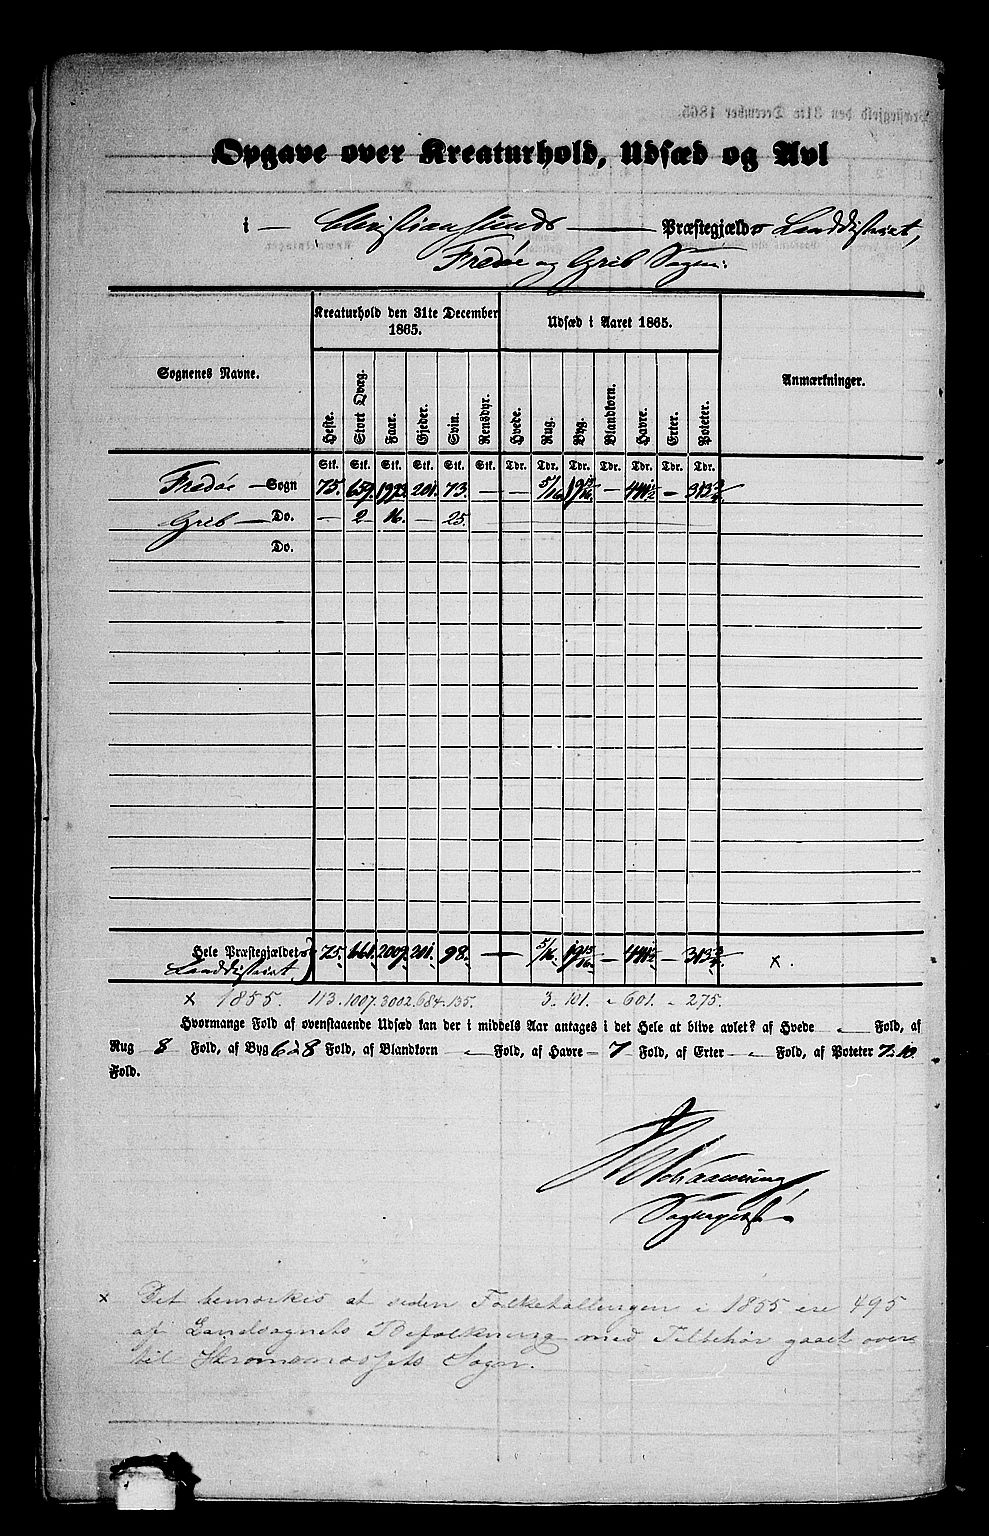 Opgave over Kreaturhold, Udsæd og Avl
i Christiansunds Præstegjælds Landdistrict,
Fredøe og Grib Sogne:
Kreaturhold den 31te December 1865. Udsæd i Aaret 1865.
Sognenes Navne. Anmærkninger.
Heste. Stort Qvæg. Faar. Gjeder. Sviin. Rensdyr. Hvede. Rug. Byg. Blandkorn. Havre. Erter. Poteter.
Stk. Stk. Stk. Stk. Stk. Stk. Tdr. Tdr. Tdr. Tdr. Tdr. Tdr. Tdr.
Fredøe Sogn 75. 659. 201. 73. — — 5/16 19 13/16 — — 313 3/4
Grib — Do. — 2 16. — 25.
Do.
Hele Præstegjældets 75. 661. 2009. 201. 98. — — 5/16 19 13/16 — — 313 3/4 x.
Landdistrict.
x 1855. 113. 1007. 3002. 684. 135. 3. 101. " 601. " 275.
Hvormange Fold af ovenstaaende Udsæd kan der i middels Aar antages i det Hele at blive avlet? af Hvede " Fold, af
Rug 8 Fold, af Byg 6 à 8 Fold, af Blandkorn " Fold, af Havre — 7 Fold, af Erter — " Fold, af Poteter 7 à 10
Fold.
Sognepræst
x Det bemærkes at siden Folketællingen i 1855 ere 495
af Landsognets Befolkning med Tilbehør gaaet over
til Sogn.